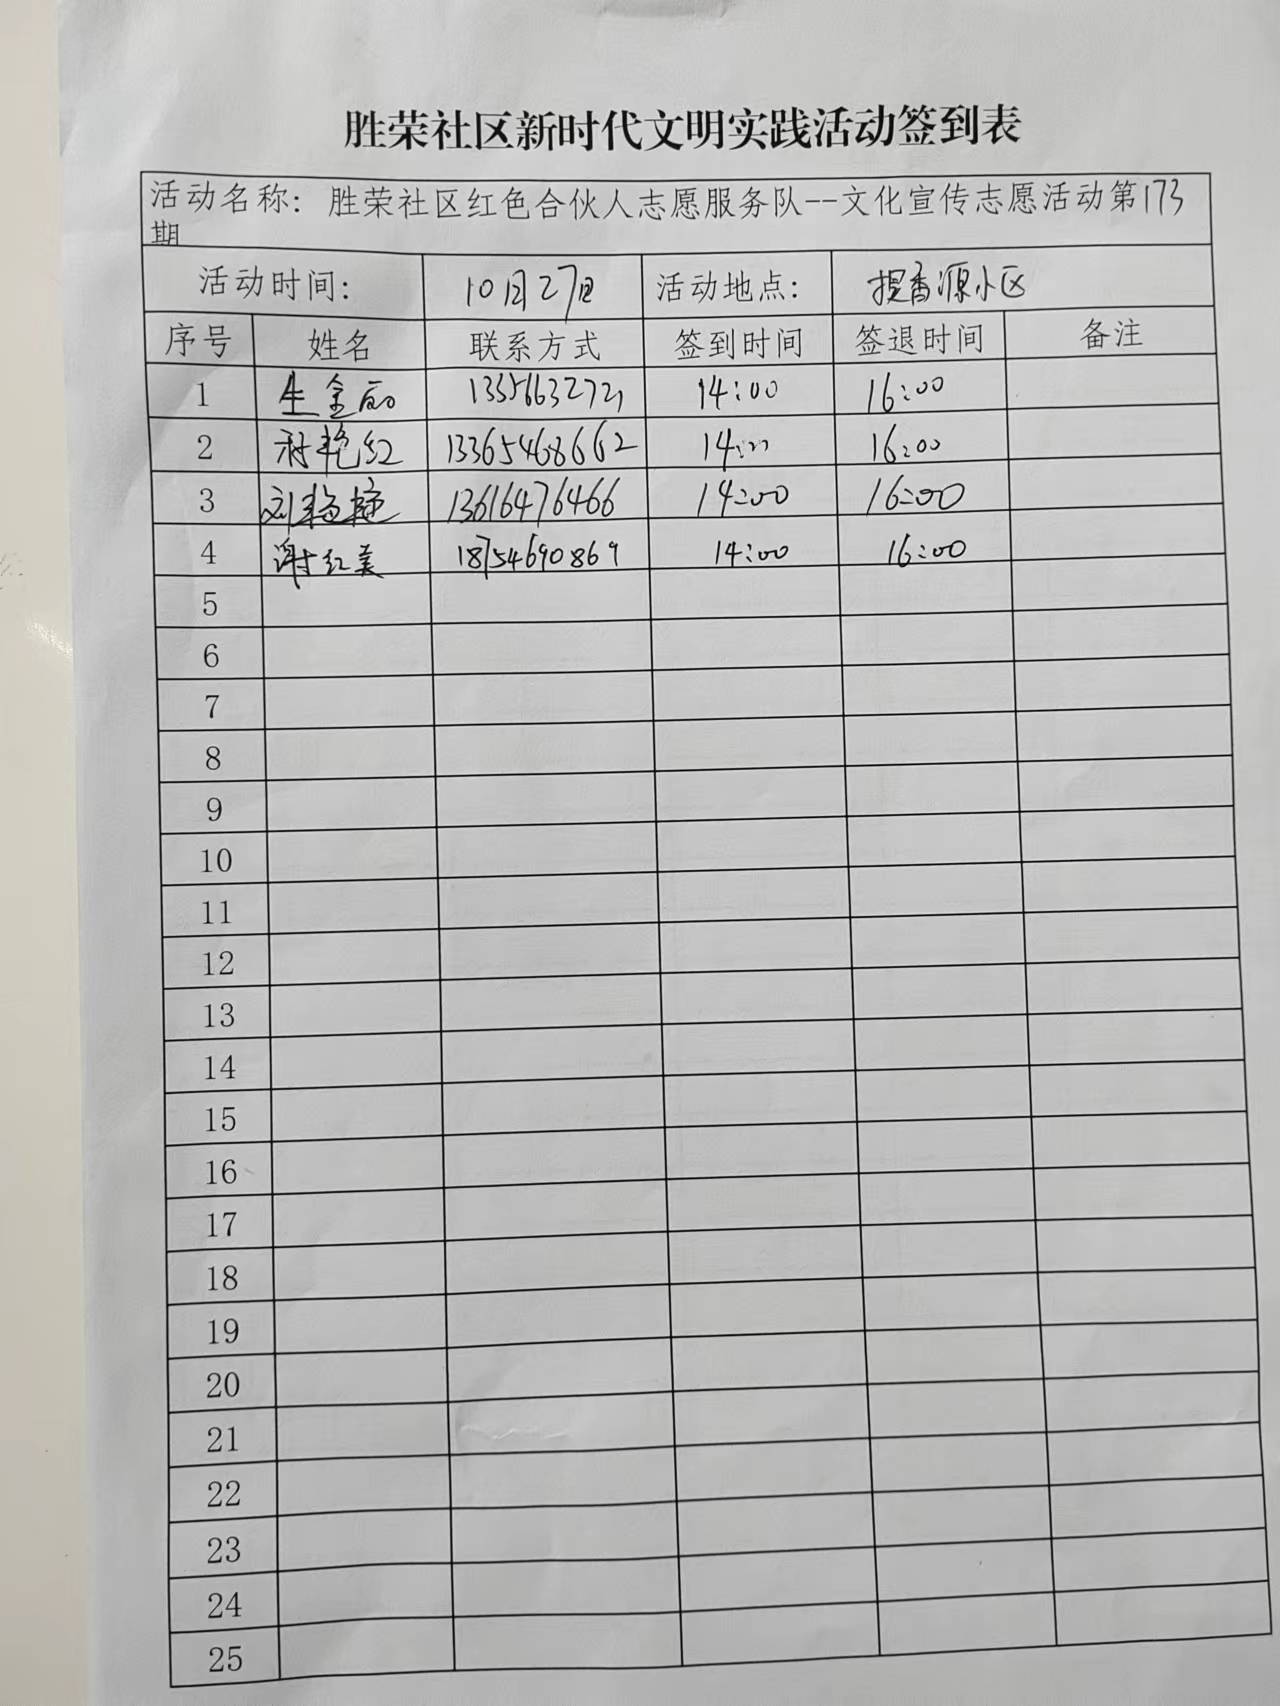 胜荣社区新时代文明实践活动签到表
活动名称: 胜荣社区红色合伙人志愿服务队--文化宣传志愿活动第173
期
活动时间: 10月27日 活动地点: 提香源小区
序号 姓名 联系方式 签到时间 签退时间 备注
1 生金丽 14:00 16:00
2 艳红 13365468662 14:" 16:00
3 刘 13616476466 14:00 16:00
4 谢红美 18754690869 14:00 16:00
5
6
7
8
9
10
11
12
13
14
15
16
17
18
19
20
21
22
23
24
25